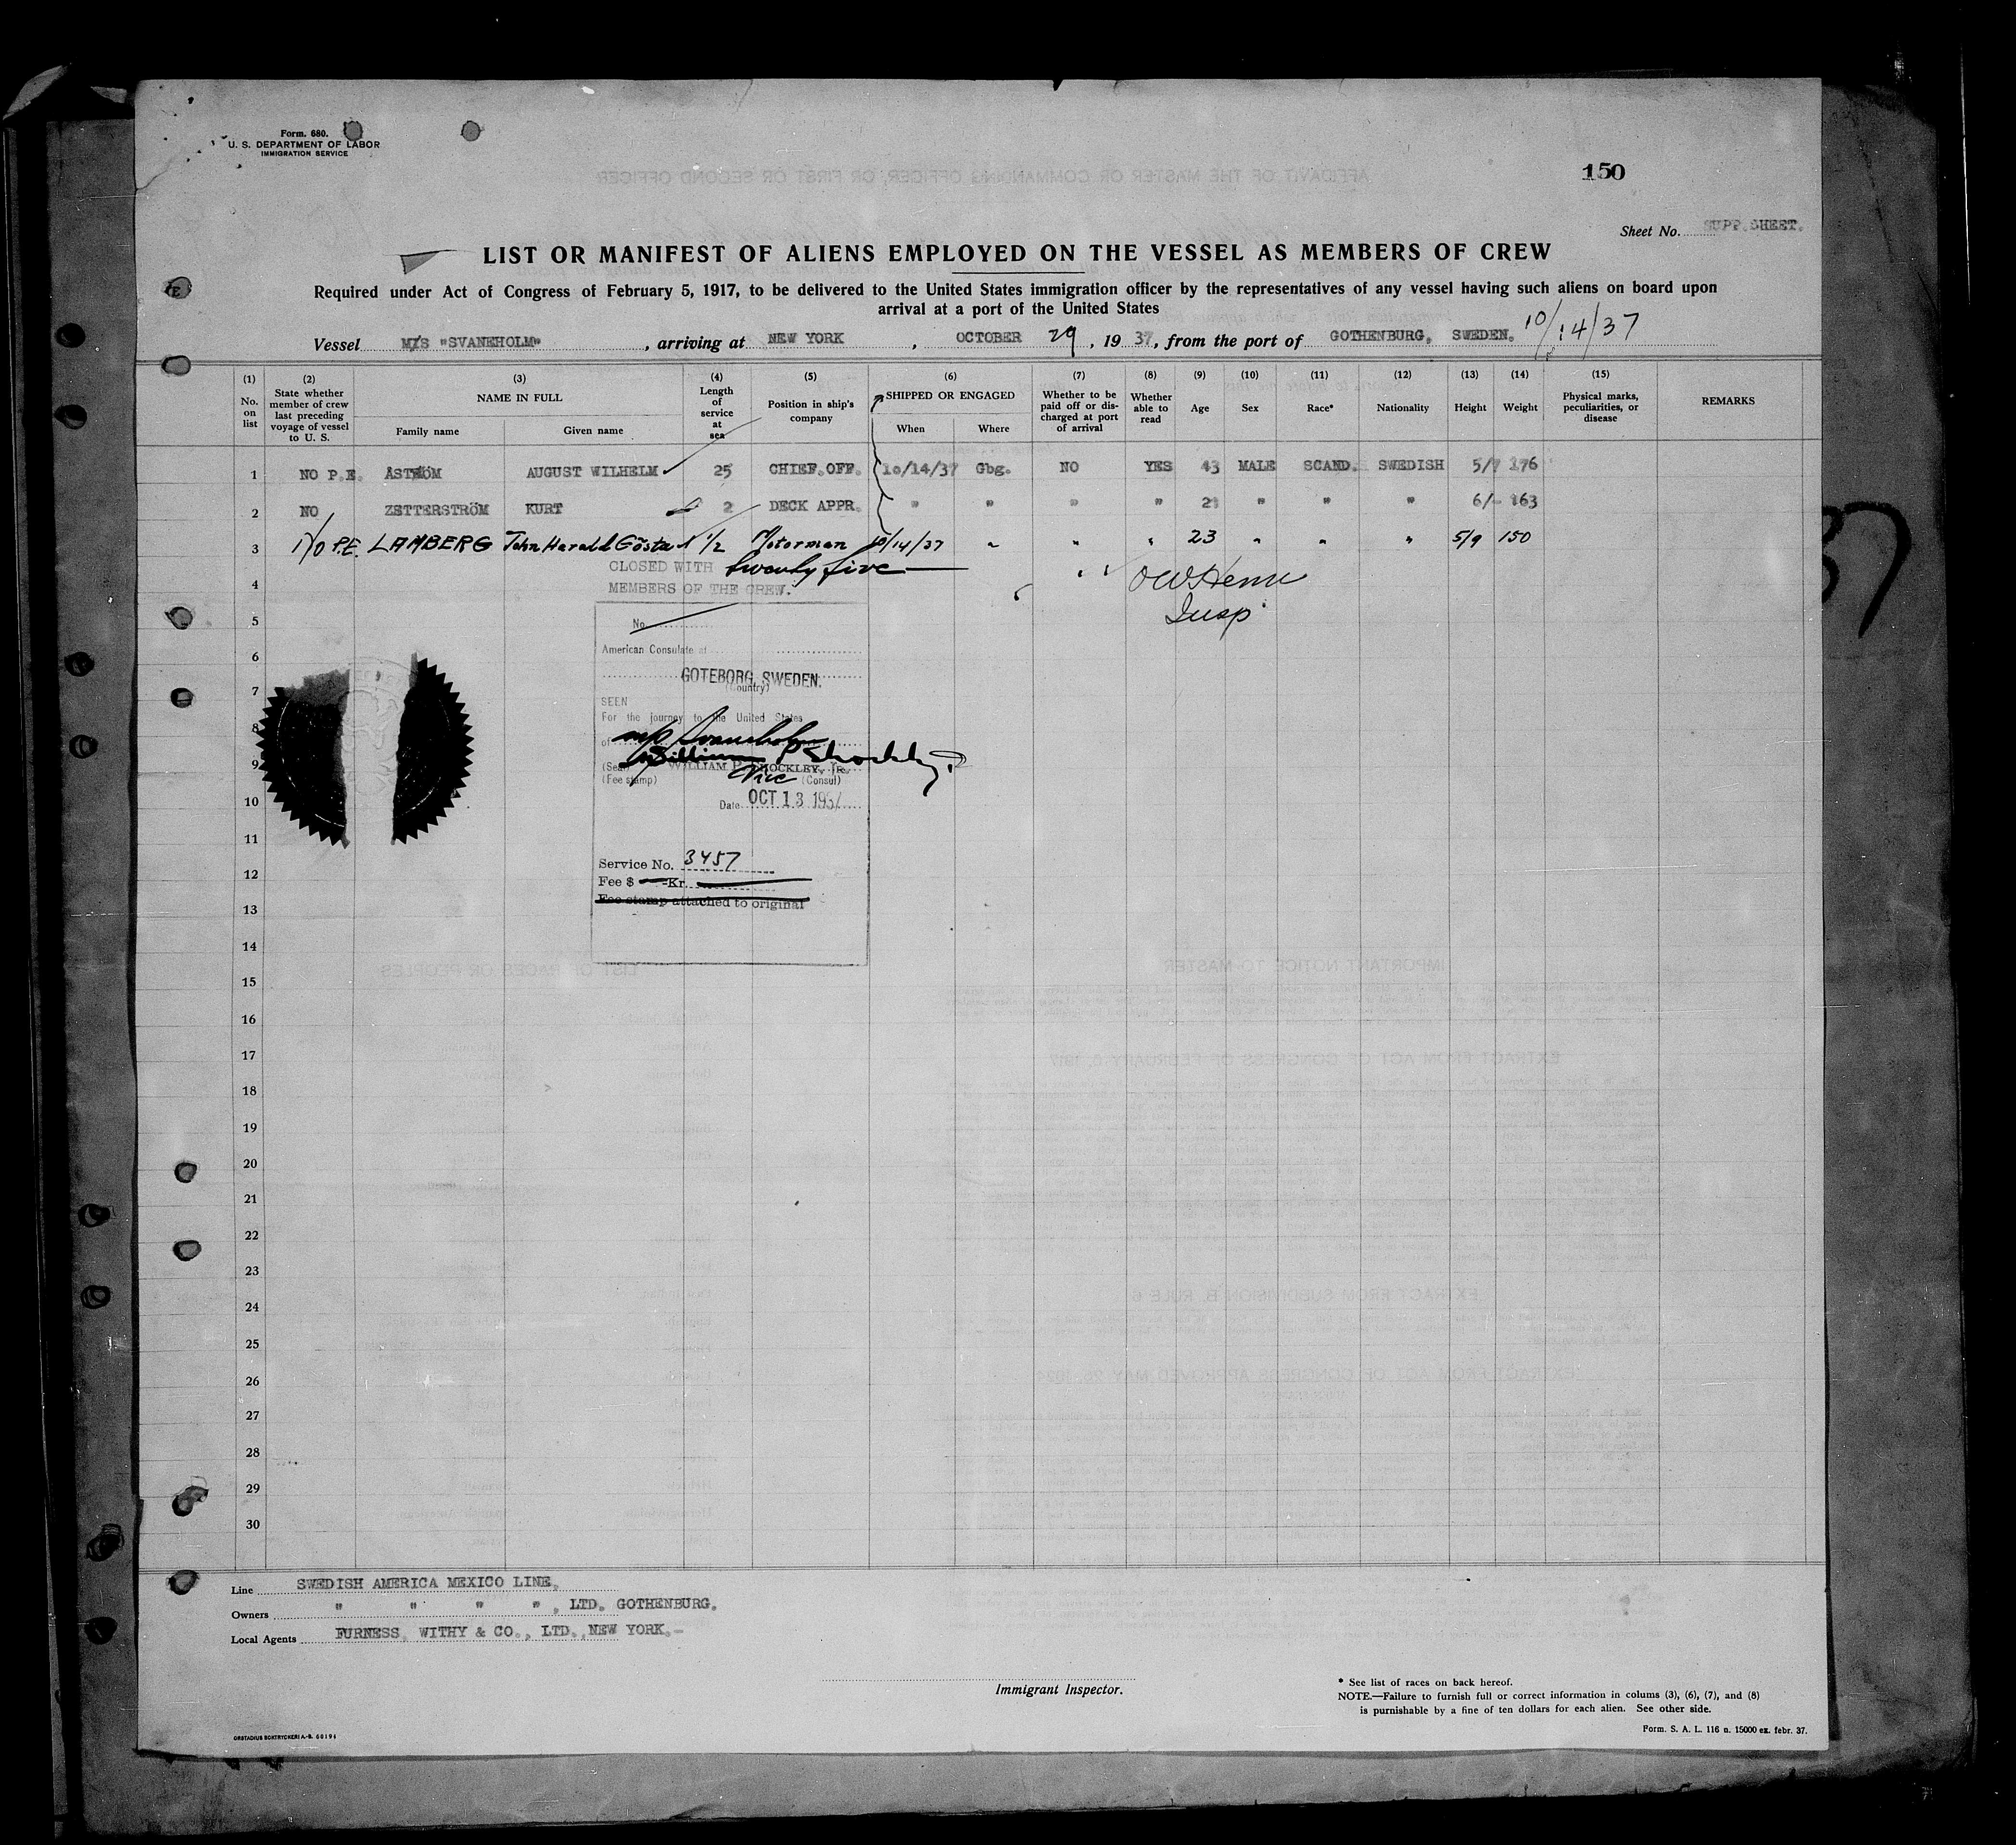 Form. 680.
U. S. DEPARTMENT OF LABOR
IMMIGRATION SERVICE
150
Sheet No. SUPP. SHEET.
LIST OR MANIFEST OF ALIENS EMPLOYED ON THE VESSEL AS MEMBERS OF CREW
Required under Act of Congress of February 5, 1917, to be delivered to the United States immigration officer by the representatives of any vessel having such aliens on board upon
arrival at a port of the United States
Vessel M/S "SVANEHOLM", arriving at NEW YORK, OCTOBER 29, 1937, from the port of GOTHENBURG, SWEDEN. 10/14/37
(1) No. on list (2) State whether member of crew last preceding voyage of vessel to U. S. (3) NAME IN FULL Family name Given name (4) Length of service at sea (5) Position in ship's company (6) SHIPPED OR ENGAGED When Where (7) Whether to be paid off or discharged at port of arrival (8) Whether able to read (9) Age (10) Sex (11) Race* (12) Nationality (13) Height (14) Weight (15) Physical marks, peculiarities, or disease REMARKS
1 NO P.E. ÅSTRÖM AUGUST WILHELM 25 CHIEF.OFF. 10/14/37 Gbg. NO YES 43 MALE SCAND. SWEDISH 5/7 176
2 NO ZETTERSTRÖM KURT 2 DECK APPR. " " " " 21 " " " 6/- 163
3 NO P.E. LAMBERG John Harald Gösta 1 1/2 Motorman 10/14/37 " " " 23 " " " 5/9 150
CLOSED WITH twenty five
4 MEMBERS OF THE CREW.
Insp
5 No.
6 American Consulate at
7 GOTEBORG, SWEDEN.
(Country)
SEEN
For the journey to the United States
8 of m/s Svaneholm
William P. Shockley, Jr.
9 (Seal) WILLIAM P. SHOCKLEY, Jr.
(Fee stamp) Vice (Consul)
10 Date OCT 13 1937
11
Service No. 3457
12 Fee $ Kr.
Fee stamp attached to original
13
14
15
16
17
18
19
20
21
22
23
24
25
26
27
28
29
30
Line SWEDISH AMERICA MEXICO LINE.
Owners " " " ", LTD. GOTHENBURG.
Local Agents FURNESS, WITHY & CO., LTD., NEW YORK.-
Immigrant Inspector.
* See list of races on back hereof.
NOTE.—Failure to furnish full or correct information in colums (3), (6), (7), and (8)
is punishable by a fine of ten dollars for each alien. See other side.
Form. S. A. L. 116 n. 15000 ex. febr. 37.